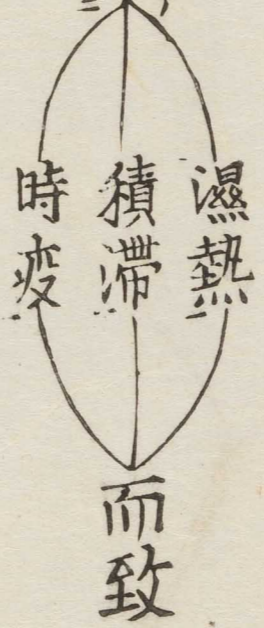 濕熱
積滯
時疫
而致